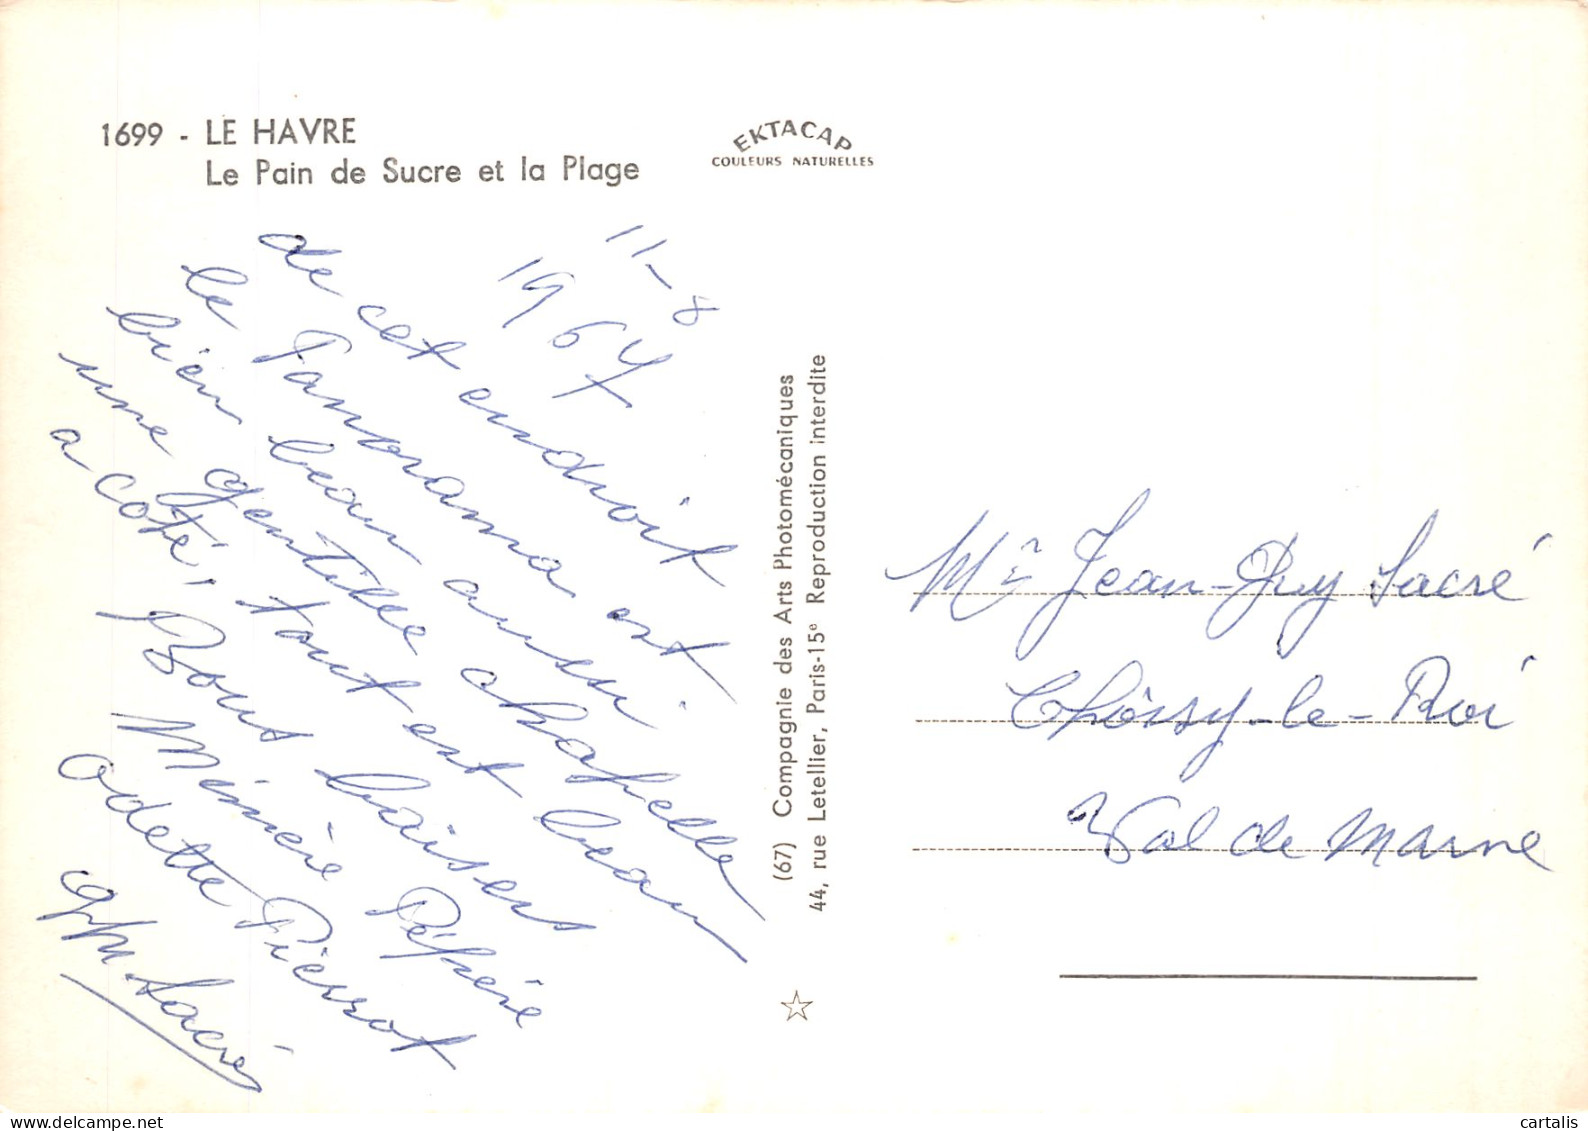 1699 - LE HAVRE
Le Pain de Sucre et la Plage
EKTACAP
COULEURS NATURELLES
11-8
1967
de cet endroit
le Panorama est
bien beau aussi
une gentille chapelle
a coté, tout est beau
Bons baisers
Mémère Pépère
Odette Pierrot
Sacré
(67) Compagnie des Arts Photomécaniques
44, rue Letellier, Paris-15e Reproduction interdite
Mr Jean-Guy Sacré
Choisy-le-Roi
Val de Marne
delcampe.net
cartalis